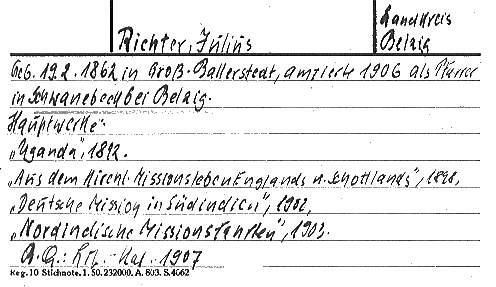 Richter, Julius
Landkreis
Belzig
Geb. 19.2.1862 in Groß-Ballerstedt, amtierte 1906 als Pfarrer
in Schwanebeck bei Belzig.
Hauptwerke:
„Uganda", 1892.
„Aus dem kirchl. Missionsleben Englands u. Schottlands", 1898,
„Deutsche Mission in Südindien", 1902,
„Nordindische Missionsfahrten", 1903.
A. Q.: Lit.-Kal. 1907
Reg. 10 Stichnote. 1. 50. 232000. A. 803. S. 4662